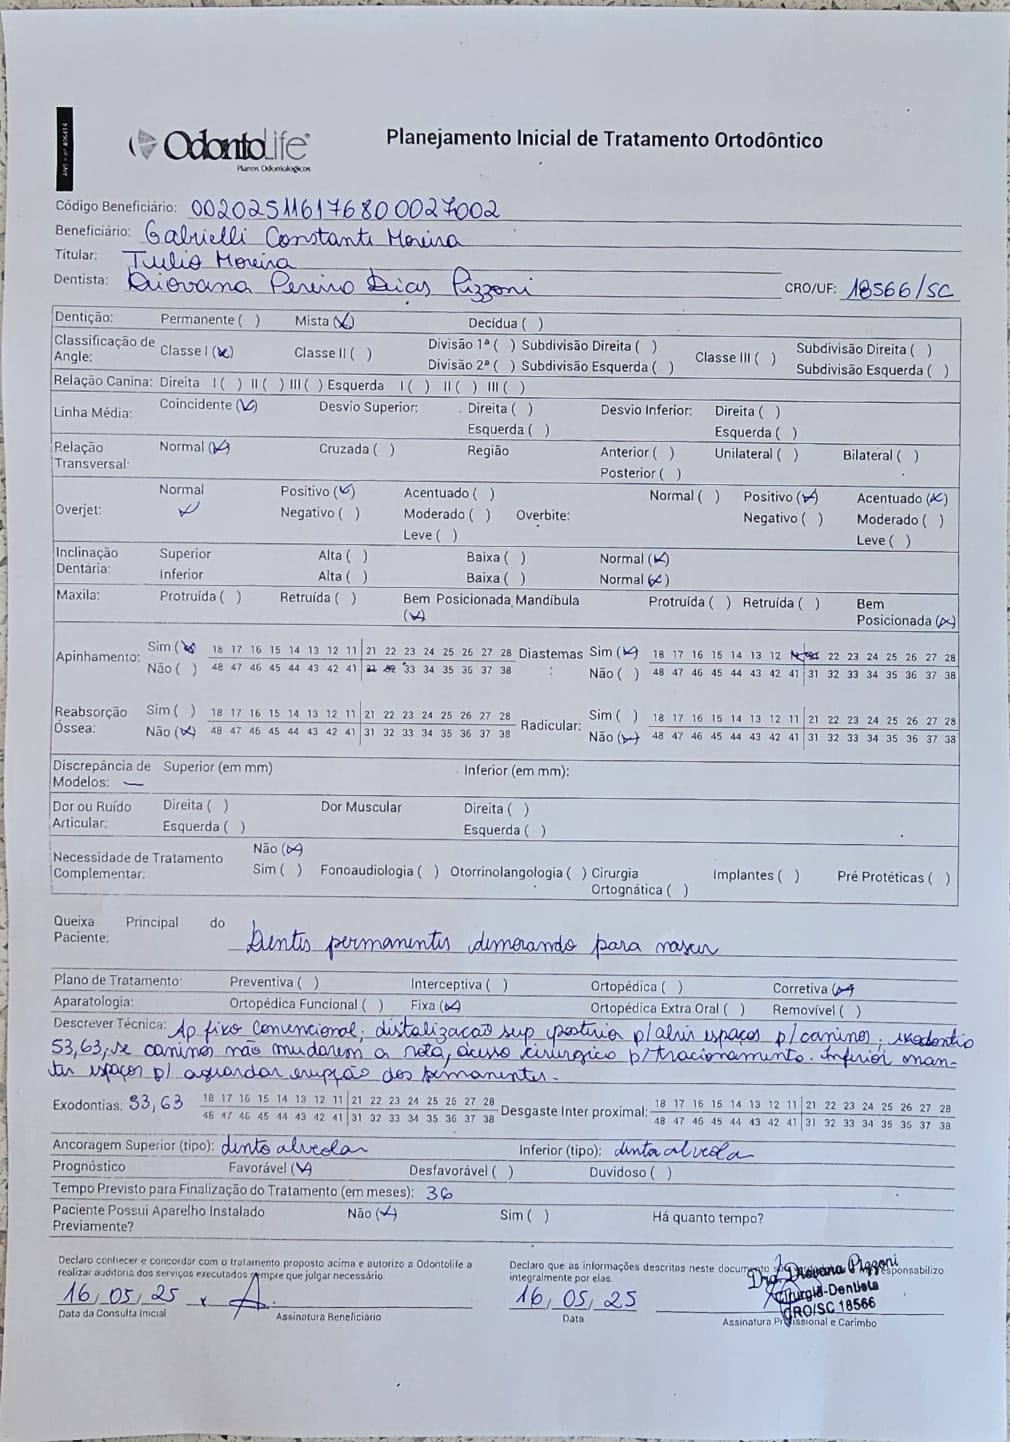 ANS - nº 406414
OdontoLife®
Planos Odontológicos
Planejamento Inicial de Tratamento Ortodôntico
Código Beneficiário: 00202511617680027002
Beneficiário: Gabrielli Constante Moreira
Titular: Tulio Moreira
Dentista: Giovana Pereira Dias Pizzoni CRO/UF: 18566/SC
Dentição: Permanente ( ) Mista (x) Decídua ( )
Classificação de Angle: Classe I (x) Classe II ( ) Divisão 1ª ( ) Subdivisão Direita ( ) Classe III ( ) Subdivisão Direita ( )
Divisão 2ª ( ) Subdivisão Esquerda ( ) Subdivisão Esquerda ( )
Relação Canina: Direita I ( ) II ( ) III ( ) Esquerda I ( ) II ( ) III ( )
Linha Média: Coincidente (x) Desvio Superior: Direita ( ) Desvio Inferior: Direita ( )
Esquerda ( ) Esquerda ( )
Relação Transversal: Normal (x) Cruzada ( ) Região Anterior ( ) Unilateral ( ) Bilateral ( )
Posterior ( )
Overjet: Normal x Positivo (x) Acentuado ( ) Overbite: Normal ( ) Positivo (x) Acentuado (x)
Negativo ( ) Moderado ( ) Negativo ( ) Moderado ( )
Leve ( ) Leve ( )
Inclinação Dentária: Superior Alta ( ) Baixa ( ) Normal (x)
Inferior Alta ( ) Baixa ( ) Normal (x)
Maxila: Protruída ( ) Retruída ( ) Bem Posicionada (x) Mandíbula Protruída ( ) Retruída ( ) Bem Posicionada (x)
Apinhamento: Sim (x) 18 17 16 15 14 13 12 11 21 22 23 24 25 26 27 28 Diastemas: Sim (x) 18 17 16 15 14 13 12 11 21 22 23 24 25 26 27 28
Não ( ) 48 47 46 45 44 43 42 41 31 32 33 34 35 36 37 38 Não ( ) 48 47 46 45 44 43 42 41 31 32 33 34 35 36 37 38
Reabsorção Óssea: Sim ( ) 18 17 16 15 14 13 12 11 21 22 23 24 25 26 27 28 Radicular: Sim ( ) 18 17 16 15 14 13 12 11 21 22 23 24 25 26 27 28
Não (x) 48 47 46 45 44 43 42 41 31 32 33 34 35 36 37 38 Não (x) 48 47 46 45 44 43 42 41 31 32 33 34 35 36 37 38
Discrepância de Modelos: — Superior (em mm) Inferior (em mm):
Dor ou Ruído Articular: Direita ( ) Dor Muscular Direita ( )
Esquerda ( ) Esquerda ( )
Necessidade de Tratamento Complementar: Não (x)
Sim ( ) Fonoaudiologia ( ) Otorrinolangologia ( ) Cirurgia Ortognática ( ) Implantes ( ) Pré Protéticas ( )
Queixa Principal do Paciente: Dentes permanentes demorando para nascer
Plano de Tratamento: Preventiva ( ) Interceptiva ( ) Ortopédica ( ) Corretiva (x)
Aparatologia: Ortopédica Funcional ( ) Fixa (x) Ortopédica Extra Oral ( ) Removível ( )
Descrever Técnica: Ap fixo convencional; distalizacao sup posterior p/ abrir espaços p/ caninos; exodontia
53,63, se caninos não mudarem a rota, acesso cirurgico p/ tracionamento. Inferior man-
ter espaços p/ aguardar erupção dos permanentes.
Exodontias: 53,63 18 17 16 15 14 13 12 11 21 22 23 24 25 26 27 28 Desgaste Inter proximal: 18 17 16 15 14 13 12 11 21 22 23 24 25 26 27 28
48 47 46 45 44 43 42 41 31 32 33 34 35 36 37 38 48 47 46 45 44 43 42 41 31 32 33 34 35 36 37 38
Ancoragem Superior (tipo): dento alveolar Inferior (tipo): dento alveolar
Prognóstico Favorável (x) Desfavorável ( ) Duvidoso ( )
Tempo Previsto para Finalização do Tratamento (em meses): 36
Paciente Possui Aparelho Instalado Previamente? Não (x) Sim ( ) Há quanto tempo?
Declaro conhecer e concordar com o tratamento proposto acima e autorizo a Odontolife a
realizar auditoria dos serviços executados sempre que julgar necessário.
16/05/25 x
Data da Consulta Inicial Assinatura Beneficiário
Declaro que as informações descritas neste documento responsabilizo
integralmente por elas.
16/05/25
Data Assinatura Profissional e Carimbo
Dra Giovana Pizzoni
Cirurgiã-Dentista
CRO/SC 18566